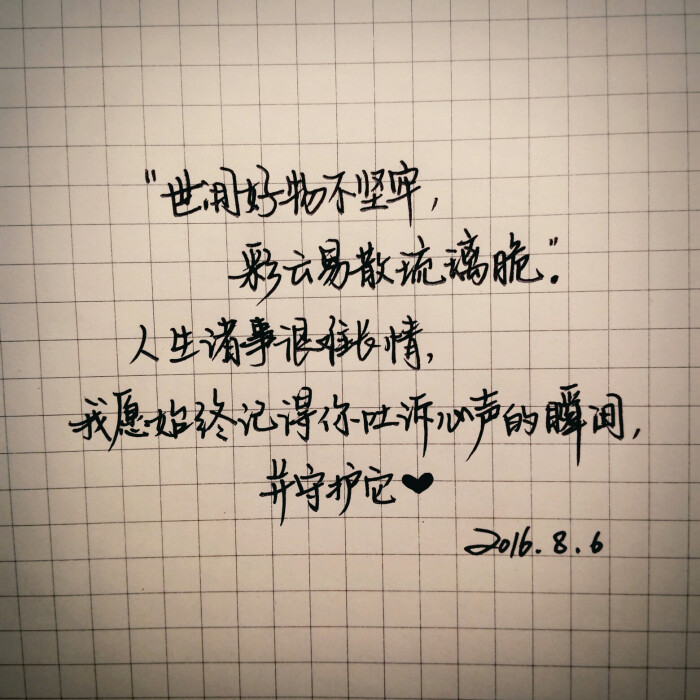 "世间好物不坚牢,
彩云易散琉璃脆"。
人生诸事很难长情,
我愿始终记得你吐诉心声的瞬间,
并守护它♥
2016.8.6